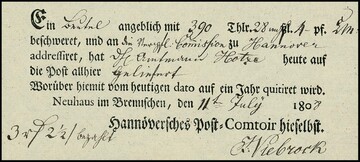 Ein Beutel angeblich mit 390 Thlr. 28 mgl. 4 pf.
beschweret, und an die Vergl. Comission zu Hannover
addressiret, hat Hr Amtmann Hotze heute auf
die Post allhier geliefert
Worüber hiemit vom heutigen dato auf ein Jahr quitiret wird.
Neuhaus im Bremischen, den 11t July 180
Hannöversches Post-Comtoir hieselbst.
3 bezahlt
Viebrock